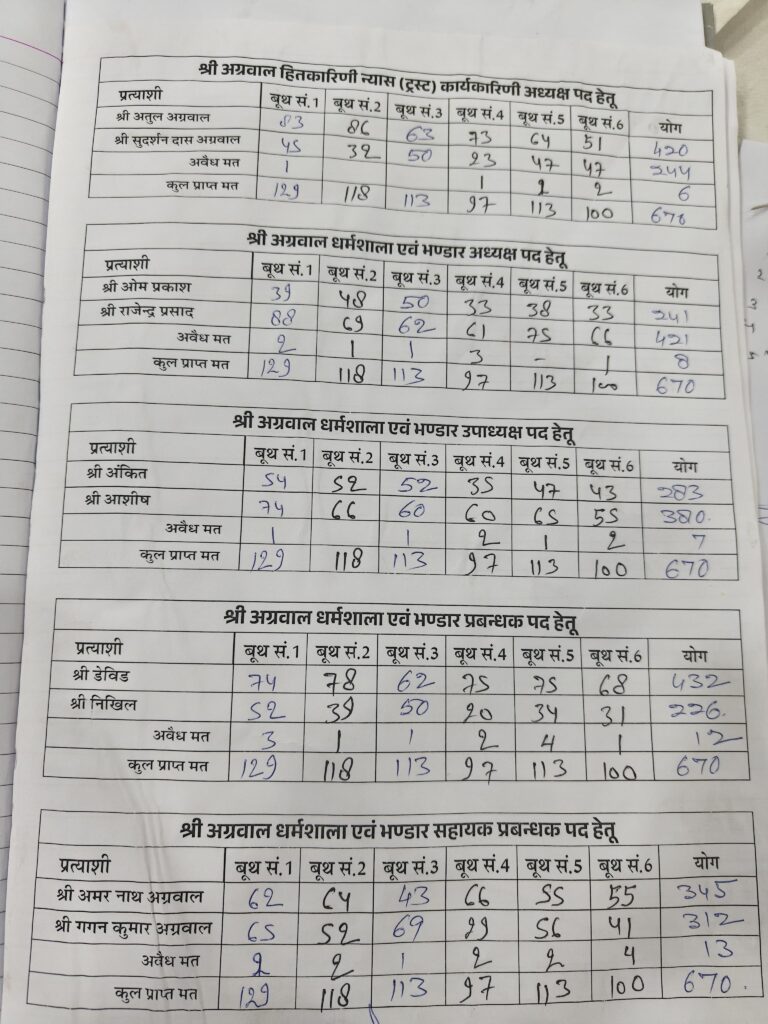 श्री अग्रवाल हितकारिणी न्यास (ट्रस्ट) कार्यकारिणी अध्यक्ष पद हेतू
प्रत्याशी बूथ सं.1 बूथ सं.2 बूथ सं.3 बूथ सं.4 बूथ सं.5 बूथ सं.6 योग
श्री अतुल अग्रवाल 83 86 63 73 64 51 420
श्री सुदर्शन दास अग्रवाल 45 32 50 23 47 47 244
अवैध मत 1 1 2 2 6
कुल प्राप्त मत 129 118 113 97 113 100 670
श्री अग्रवाल धर्मशाला एवं भण्डार अध्यक्ष पद हेतू
प्रत्याशी बूथ सं.1 बूथ सं.2 बूथ सं.3 बूथ सं.4 बूथ सं.5 बूथ सं.6 योग
श्री ओम प्रकाश 39 48 50 33 38 33 241
श्री राजेन्द्र प्रसाद 88 69 62 61 75 66 421
अवैध मत 2 1 1 3 - 1 8
कुल प्राप्त मत 129 118 113 97 113 100 670
श्री अग्रवाल धर्मशाला एवं भण्डार उपाध्यक्ष पद हेतू
प्रत्याशी बूथ सं.1 बूथ सं.2 बूथ सं.3 बूथ सं.4 बूथ सं.5 बूथ सं.6 योग
श्री अंकित 54 52 52 35 47 43 283
श्री आशीष 74 66 60 60 65 55 380.
अवैध मत 1 1 2 1 2 7
कुल प्राप्त मत 129 118 113 97 113 100 670
श्री अग्रवाल धर्मशाला एवं भण्डार प्रबन्धक पद हेतू
प्रत्याशी बूथ सं.1 बूथ सं.2 बूथ सं.3 बूथ सं.4 बूथ सं.5 बूथ सं.6 योग
श्री डेविड 74 78 62 75 75 68 432
श्री निखिल 52 39 50 20 34 31 226.
अवैध मत 3 1 1 2 4 1 12
कुल प्राप्त मत 129 118 113 97 113 100 670
श्री अग्रवाल धर्मशाला एवं भण्डार सहायक प्रबन्धक पद हेतू
प्रत्याशी बूथ सं.1 बूथ सं.2 बूथ सं.3 बूथ सं.4 बूथ सं.5 बूथ सं.6 योग
श्री अमर नाथ अग्रवाल 62 64 43 66 55 55 345
श्री गगन कुमार अग्रवाल 65 52 69 29 56 41 312
अवैध मत 2 2 1 2 2 4 13
कुल प्राप्त मत 129 118 113 97 113 100 670.